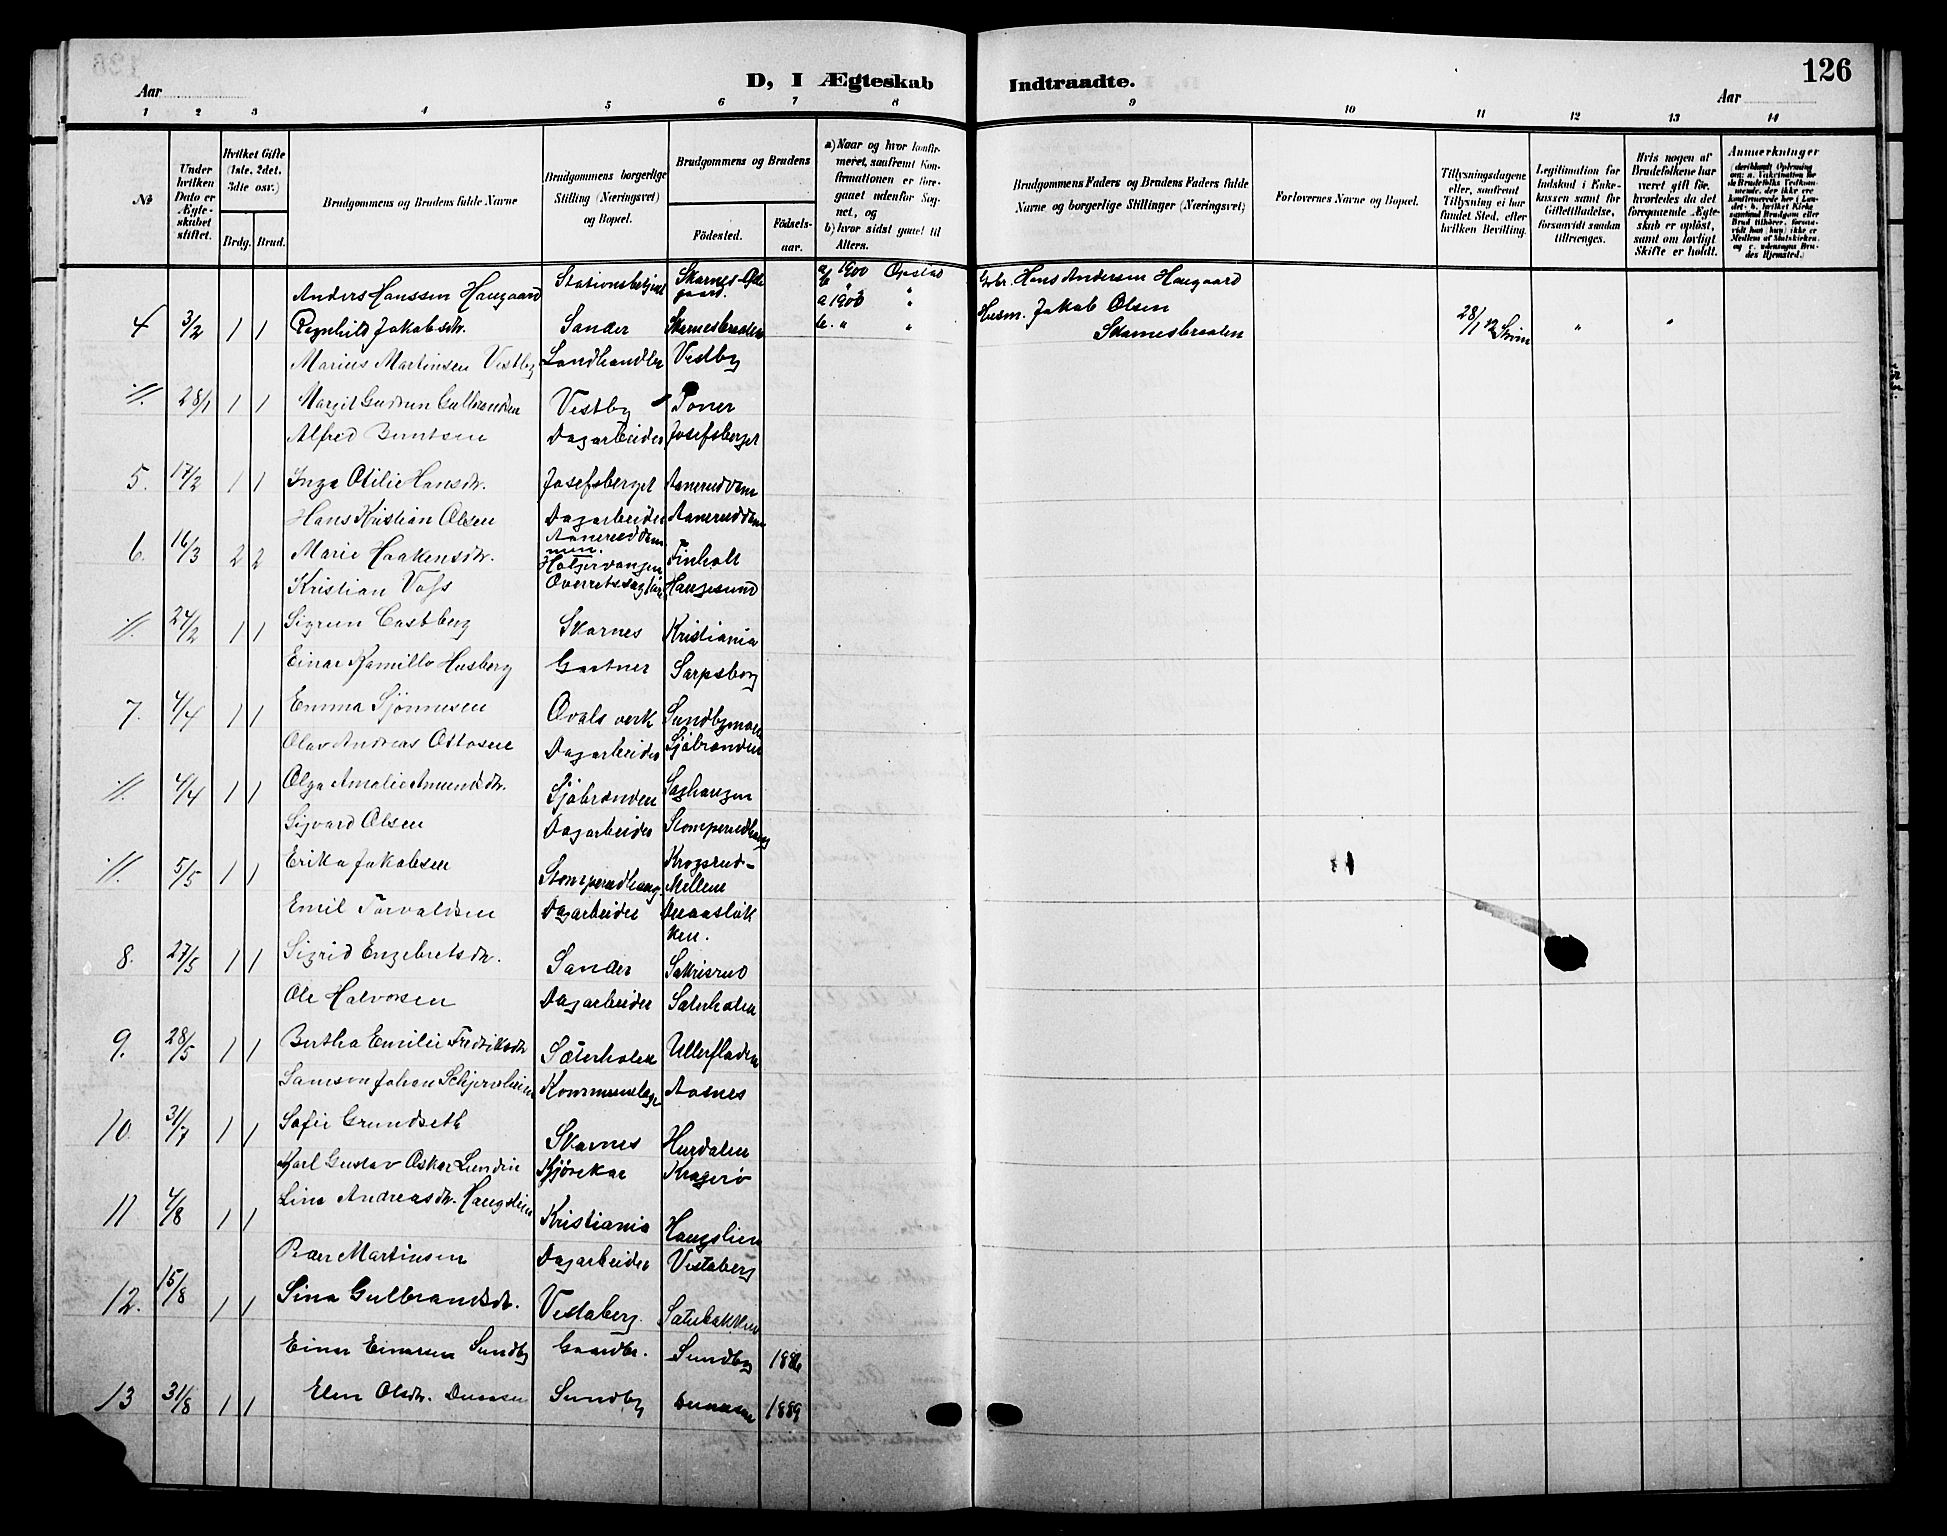 126
D, I Ægteskab Indtraadte.
Aar
Aar
1 2 3 4 5 6 7 8 9 10 11 12 13 14
No
Under hvilken Dato er Ægteskabet stiftet.
Hvilket Gifte (1ste, 2det, 3die osv.)
Brdg. Brud.
Brudgommens og Brudens fulde Navne
Brudgommens borgerlige Stilling (Næringsvei) og Bopæl.
Brudgommens og Brudens
Fødested.
Fødselsaar.
a) Naar og hvor konfirmeret, saafremt Konfirmationen er foregaaet udenfor Sognet, og
b) hvor sidst gaaet til Alters.
Brudgommens Faders og Brudens Faders fulde Navne og borgerlige Stillinger (Næringsvei)
Forlovernes Navne og Bopæl.
Tillysningsdagene eller, saafremt Tillysning ei har fundet Sted, efter hvilken Bevilling.
Legitimation for Indskud i Enkekassen samt for Giftetilladelse, forsaavidt saadan tiltrænges.
Hvis nogen af Brudefolkene har været gift før, hvorledes da det foregaaende Ægteskab er opløst, samt om lovligt Skifte er holdt.
Anmerkninger
Anders Hanssen Haugaard Stationsbetjent Skarnes a 1900 Opstad Gbr. Hans Andersen Haugaard
4 3/2 1 1 Ragnhild Jakobsdr. Sander Skarnesbraaten a 1900 b. " " Husm. Jakob Olsen Skarnesbraaten 28/1 12
Marius Martinsen Vestby Landhandler Vestby
11. 28/1 1 1 Margit Gudrun Gulbrandsen Vestby Toner
Alfred Berntsen Dagarbeider Josefsberget
5. 17/2 1 1 Inga Otilie Hansdr. Josefsberget
Hans Kristian Olsen Dagarbeider
6. 16/3 2 2 Marie Haakensdr. Holjervangen Finholt
Kristian Voss Haugesund
11. 24/2 1 1 Sigrun Castberg Skarnes Kristiania
Einar Kamillo Husberg Gartner Sarpsborg
7. 4/4 1 1 Emma Sjønnesen Ovals verk Sundbymoen
Olav Andreas Ottosen Dagarbeider Sjöbranden
11. 4/4 1 1 Olga Amalie Amundsdr. Sjöbranden Saghaugen
Sigvard Olsen Dagarbeider Stomperudhaug
11. 5/5 1 1 Erika Jakobsen Stomperudhaug. Krogsrud-Mellem
Emil Torvaldsen Dagarbeider
8. 27/5 1 1 Sigrid Engebretsdr. Sander Sakrisrud
Ole Halvorsen Dagarbeider Sæterholen
9. 28/5 1 1 Bertha Emilie Fredriksdr. Sæterholen Ullerfladen
Samson Johan Aasnes
10. 31/7 1 1 Sofie Grundseth Skarnes Hurdalen
Karl Gustav Oskar Lundin Kjørekar Kragerö
11 4/8 1 1 Lina Andreasdr. Haugslien Kristiania Haugslien
Peder Martinsen Dagarbeider Vestaberg
12. 15/8 1 1 Sina Gulbrandsdr. Vestaberg. Sæterbakken
Einar Einarsen Sundby Gaardbr. Sundby 1886
13 31/8 1 1 Elen Olsdr. Sundby 1889